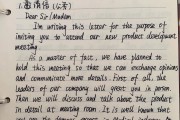 3. 邀请信 (公务)
Dear Sir/Madam
I'm writing this letter for the purpose of
inviting you to attend our new product development
meeting.
As a matter of fact, we have planned to
hold this meeting so that we can exchange opinions
and communicate more details. First of all, the
leaders of our company will great you in person.
Then we will discuss and talk about the product
in detail at meeting room. It is well known that